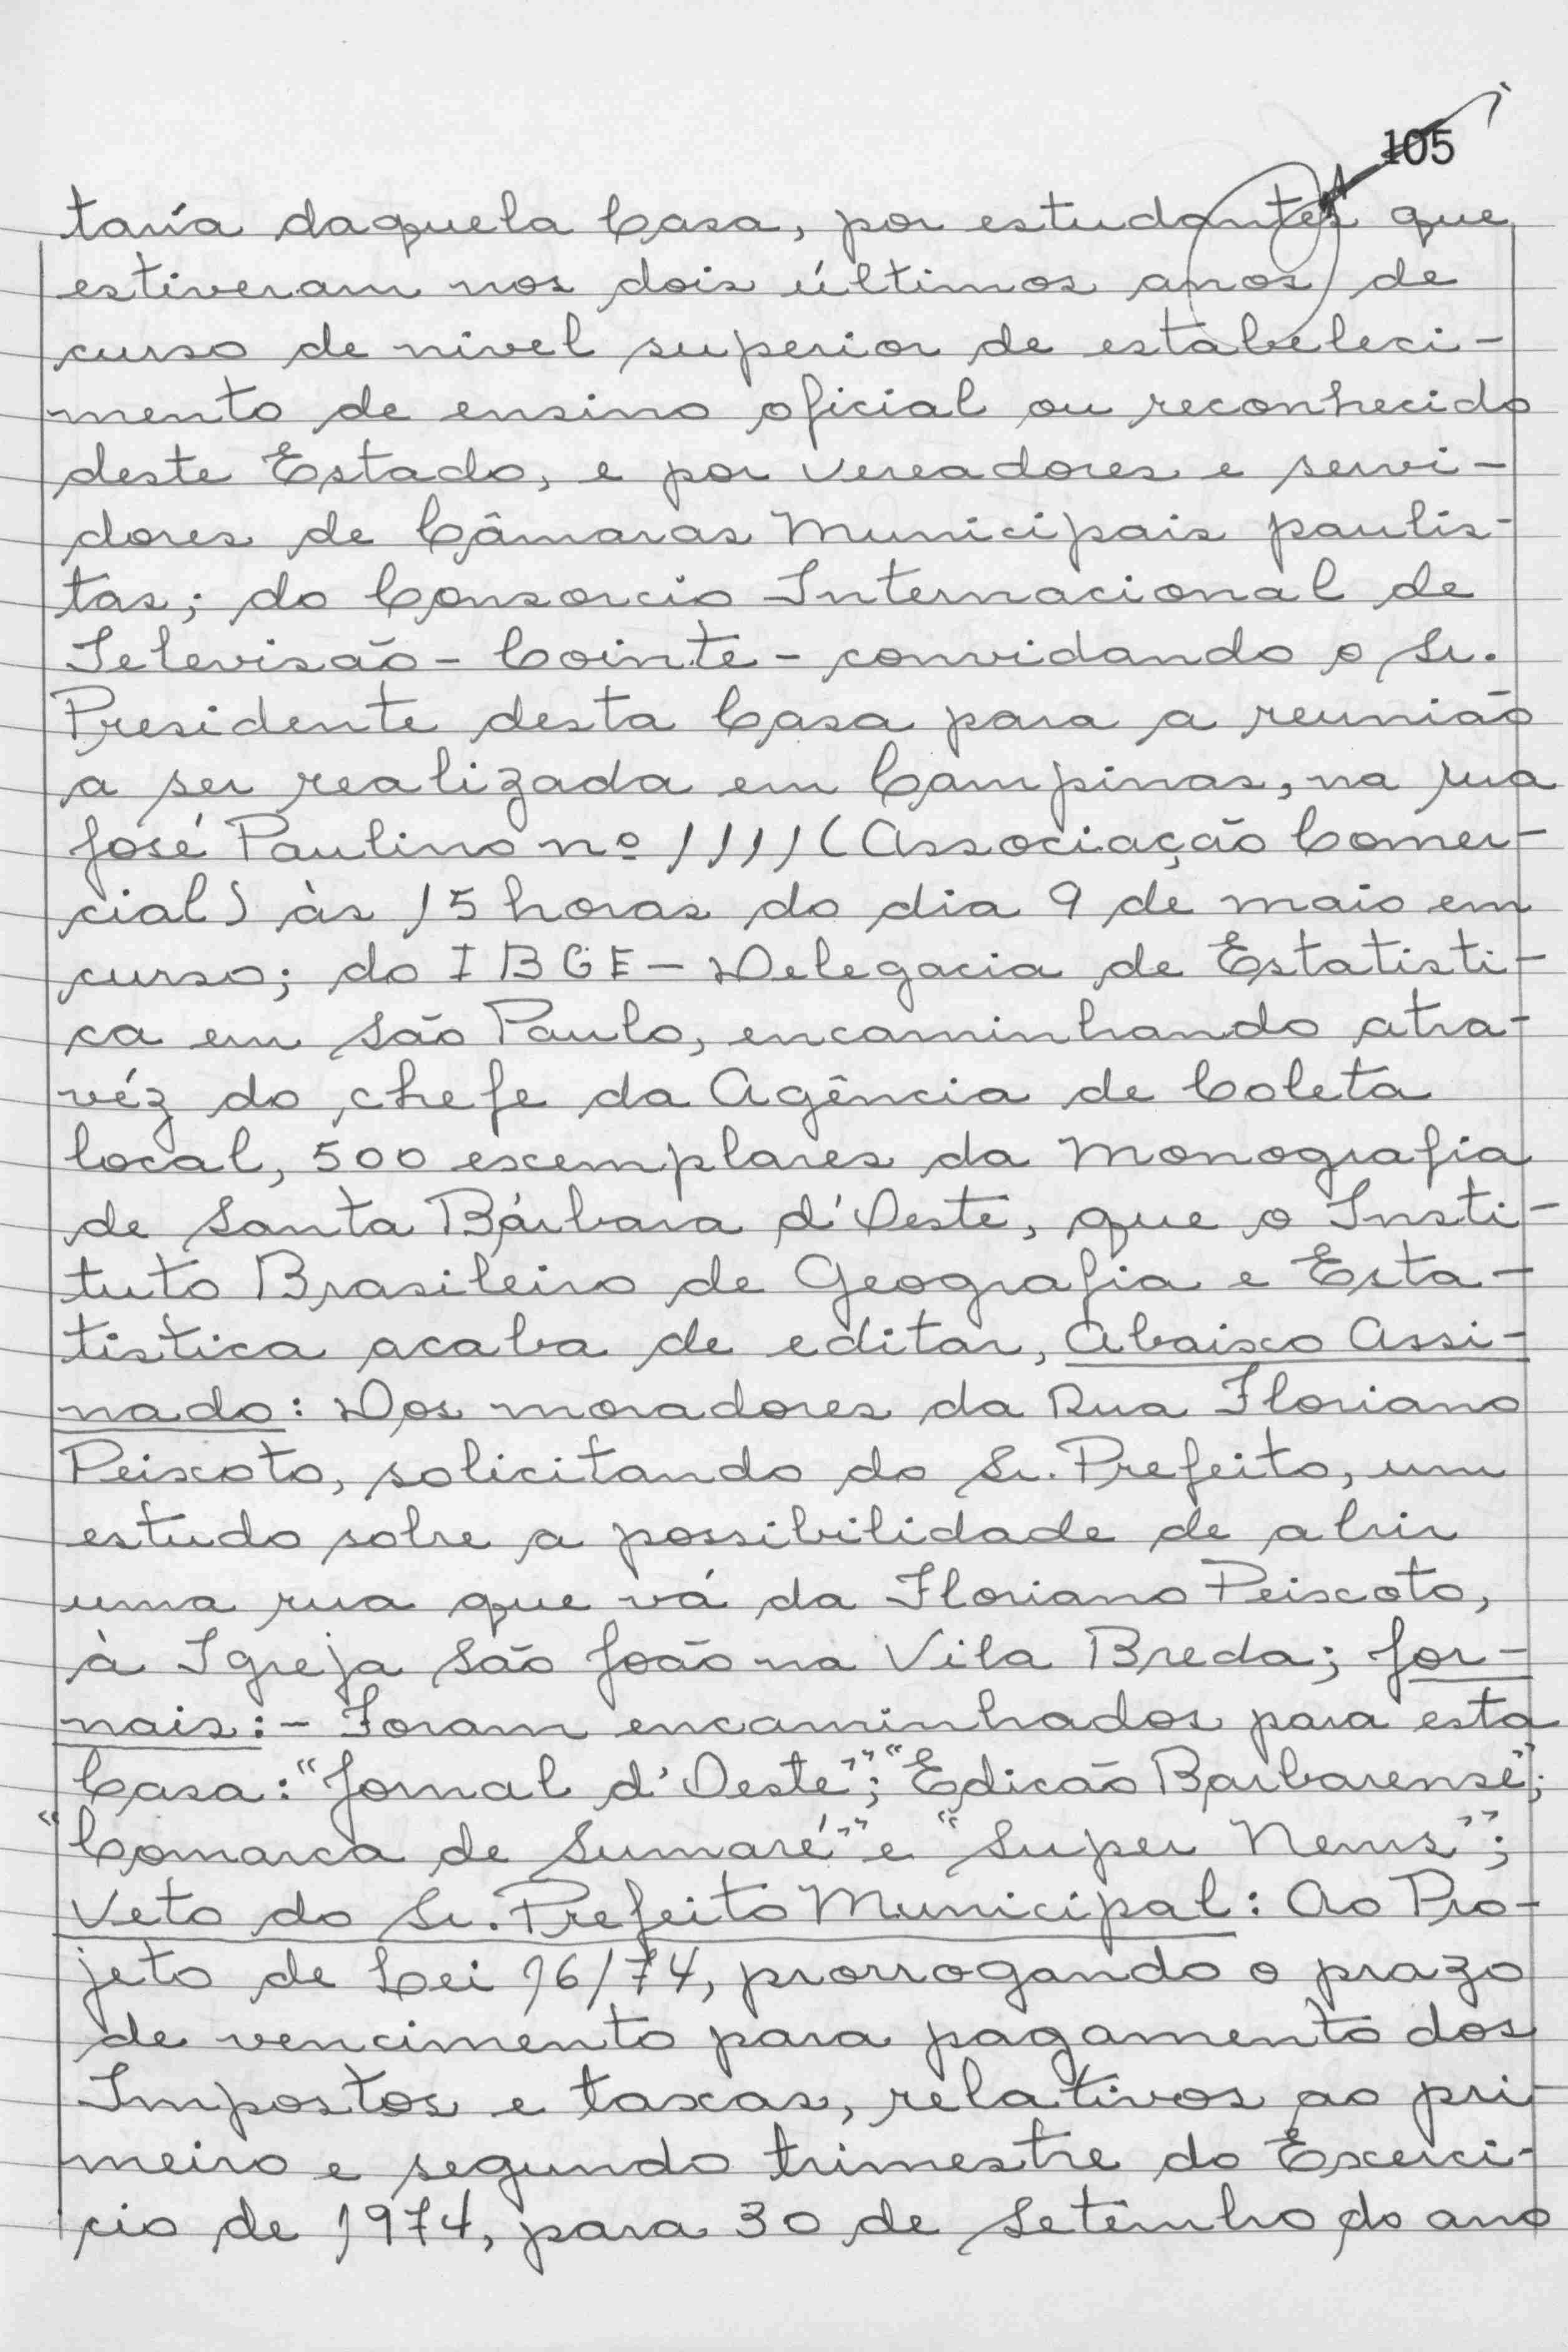 105
taria daquela Casa, por estudantes que
estiveram nos dois últimos anos de
curso de nivel superior de estabeleci-
mento de ensino oficial ou reconhecido
deste Estado, e por vereadores e servi-
dores de Câmaras Municipais paulis-
tas; do Consorcio Internacional de
Televisão - Cointe - convidando o Sr.
Presidente desta Casa para a reunião
a ser realizada em Campinas, na rua
José Paulino nº 1111 (Associação Comer-
cial) às 15 horas do dia 9 de maio em
curso; do IBGE - Delegacia de Estatisti-
ca em São Paulo, encaminhando atra-
véz do chefe da Agência de Coleta
local, 500 exemplares da Monografia
de Santa Bárbara d'Oeste, que o Insti-
tuto Brasileiro de Geografia e Esta-
tistica acaba de editar, Abaixo Assi-
nado: Dos moradores da Rua Floriano
Peixoto, solicitando do Sr. Prefeito, um
estudo sobre a possibilidade de abrir
uma rua que vá da Floriano Peixoto,
à Igreja São João na Vila Breda; Jor-
nais:- Foram encaminhados para esta
Casa: "Jornal d'Oeste"; "Edicão Barbarense";
"Comarca de Sumaré" e "Super News";
Veto do Sr. Prefeito Municipal: Ao Pro-
jeto de Lei 16/74, prorrogando o prazo
de vencimento para pagamento dos
Impostos e taxas, relativos ao pri-
meiro e segundo trimestre do Exerci-
cio de 1974, para 30 de Setembro do ano